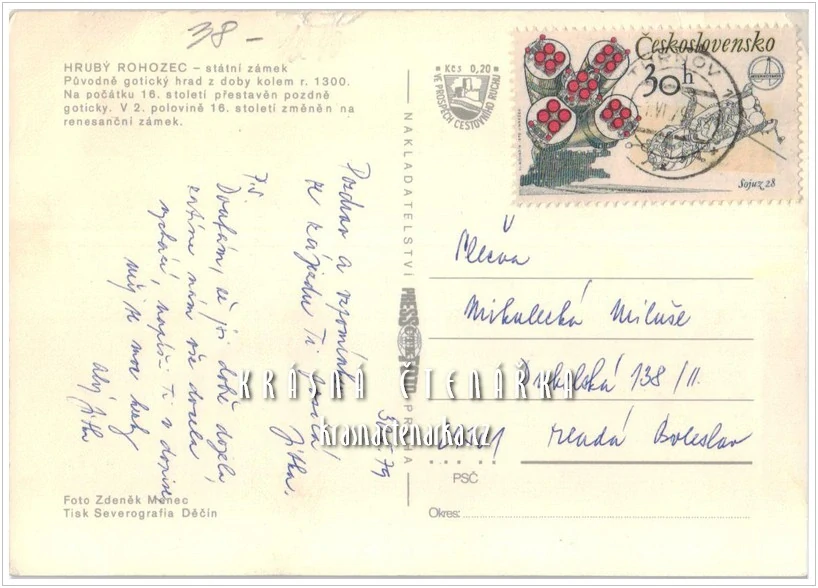 38 -
HRUBÝ ROHOZEC – státní zámek
Původně gotický hrad z doby kolem r. 1300.
Na počátku 16. století přestavěn pozdně
goticky. V 2. polovině 16. století změněn na
renesanční zámek.
Kčs 0,20
VE PROSPĚCH CESTOVNÍHO RUCHU
Československo
30h
INTERKOSMOS
Sojuz 28
TURNOV 1
Pozdrav a vzpomínku
ze zájezdu Ti posílá
Jitka.
P.S.
Doufám, že jsi dobře dojela,
zatím nám vše docela
vychází, napíši Ti v dopise
měj se moc hezky
Jitka
NAKLADATELSTVÍ PRESSFOTO PRAHA
Mikulecká Miluše
Dukelská 138/II.
Mladá Boleslav
PSČ
Okres:
KRÁSNÁ ČTENÁŘKA
krasnactenarka.cz
Foto Zdeněk Menec
Tisk Severografia Děčín